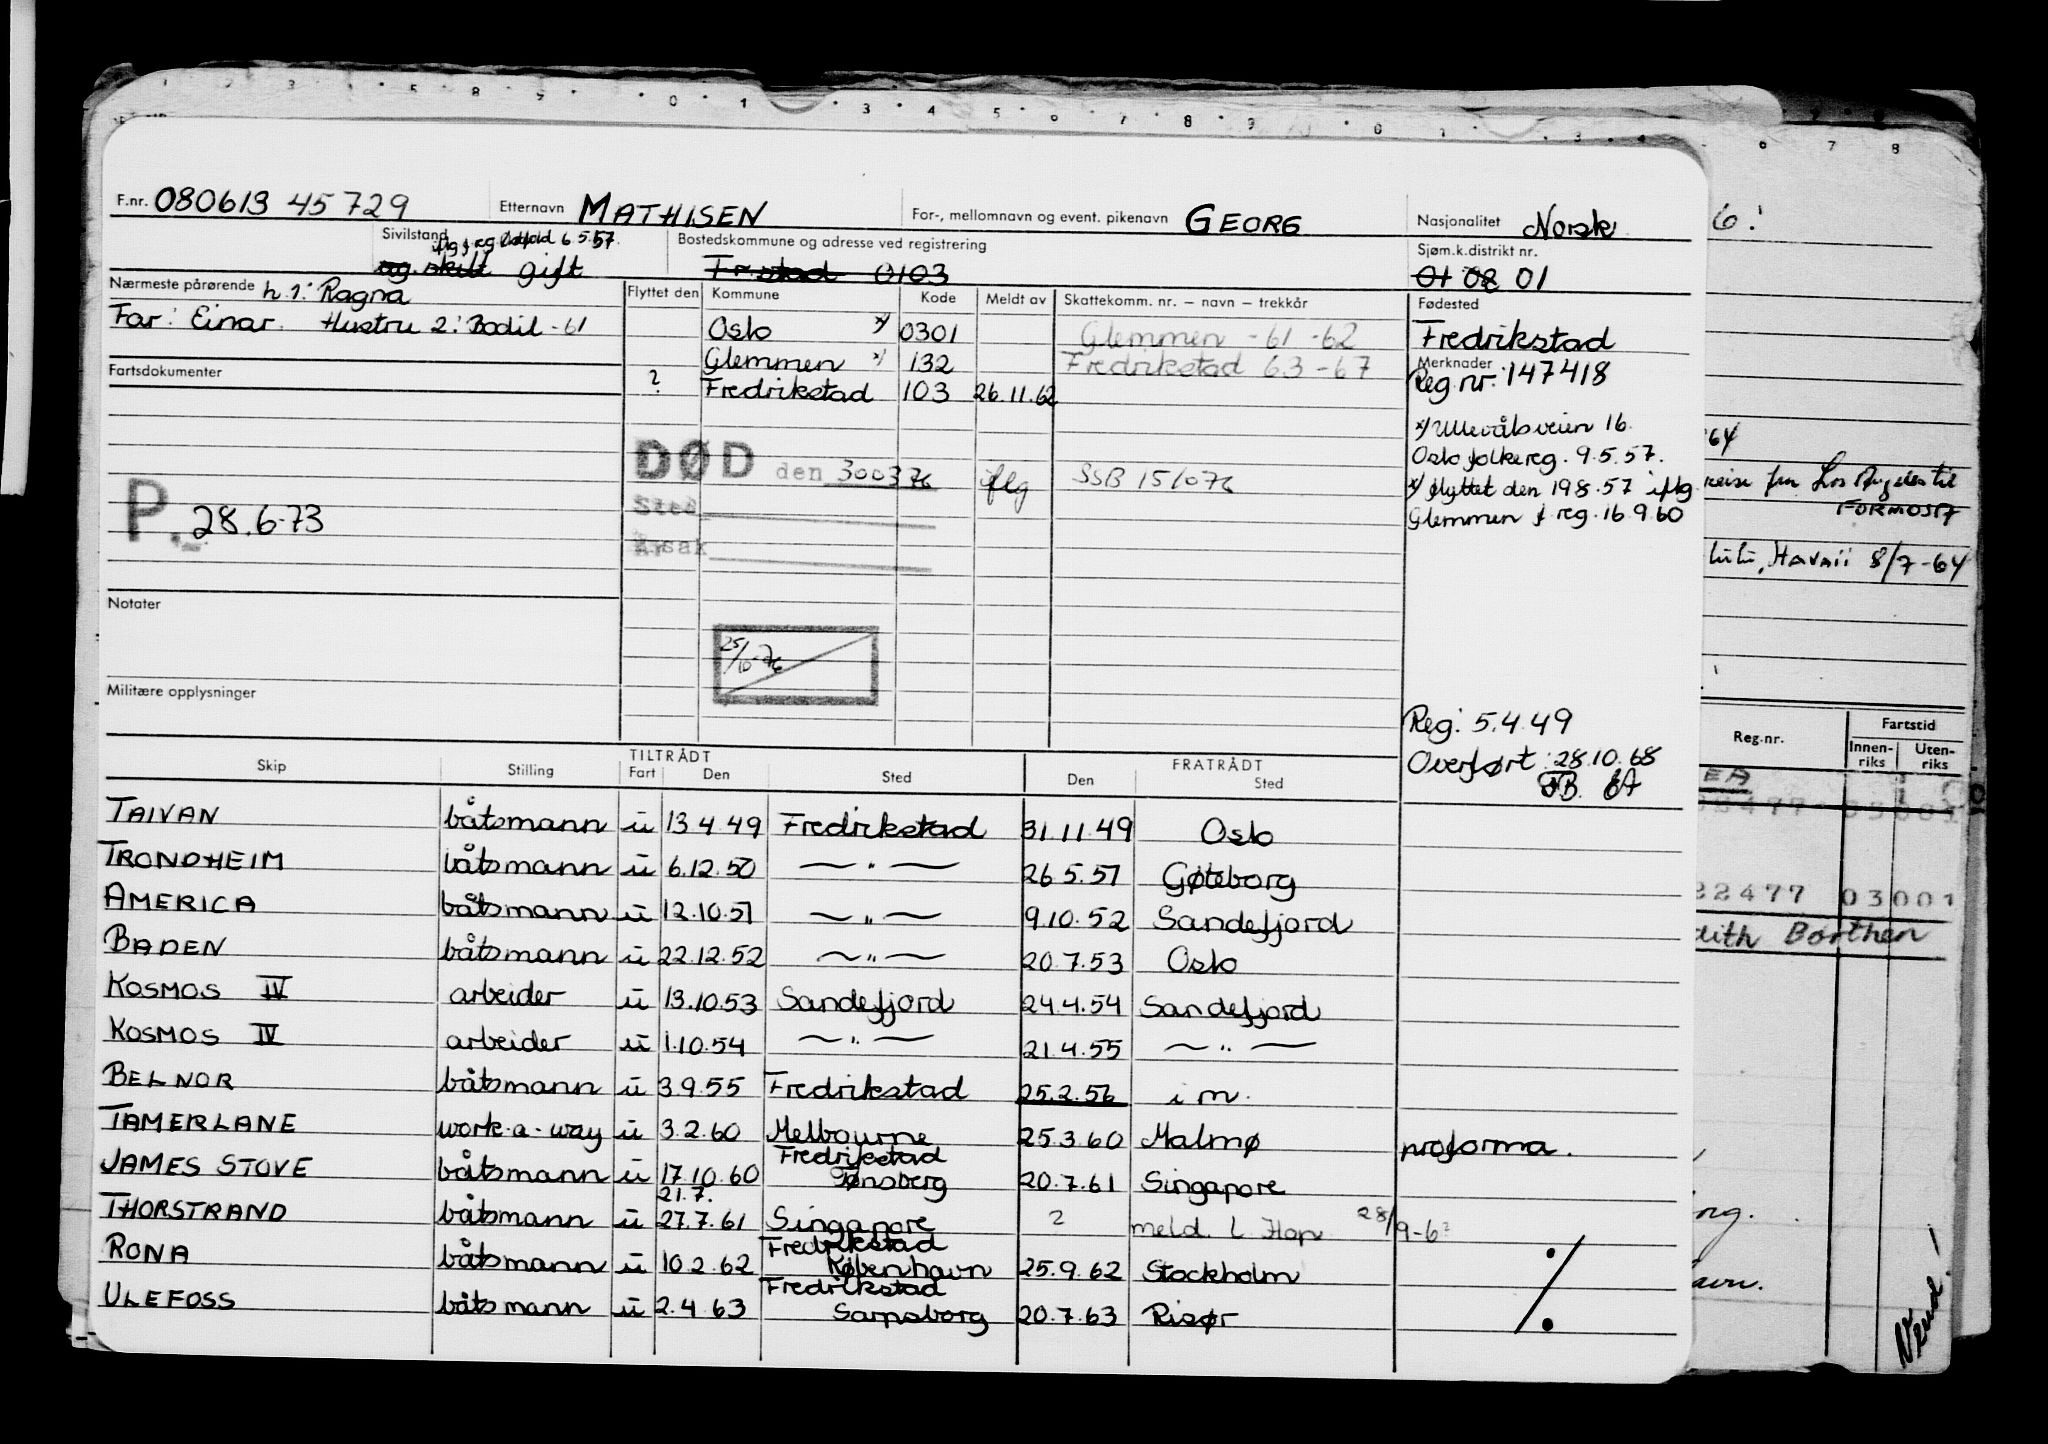 F.nr. 080613 45729 Etternavn MATHISEN For-, mellomnavn og event. pikenavn GEORG Nasjonalitet Norsk
Sivilstand 6.5.57. gift Bostedskommune og adresse ved registrering Fr.stad 0103 Sjøm.k.distrikt nr. 01 08 01
Nærmeste pårørende h. 1: Ragna
Far: Einar. Hustru 2: Bodil -61
Flyttet den Kommune Kode Meldt av Skattekomm. nr. – navn – trekkår
Oslo x) 0301 Glemmen -61 -62
Glemmen x) 132 Fredrikstad 63-67
? Fredrikstad 103 26.11.62
Fødested
Fredrikstad
Merknader
Reg.nr. 147418
x) Ullevålsveien 16.
Oslo folkereg. 9.5.57.
x) flyttet den 198.57 iflg
Glemmen f. reg. 16.9.60
Fartsdokumenter
P. 28.6-73
DØD den 300376 iflg SSB 151076
Sted
Årsak
Notater
25/10-76
Militære opplysninger
Reg: 5.4.49
Overført: 28.10.68
Skip Stilling TILTRÅDT Fart Den Sted FRATRÅDT Den Sted
TAIVAN båtsmann u 13.4.49 Fredrikstad 31.11.49 Oslo
TRONDHEIM båtsmann u 6.12.50 —"— 26.5.51 Gøteborg
AMERICA båtsmann u 12.10.51 —"— 9.10.52 Sandefjord
BADEN båtsmann u 22.12.52 —"— 20.7.53 Oslo
KOSMOS IV arbeider u 13.10.53 Sandefjord 24.4.54 Sandefjord
KOSMOS IV arbeider u 1.10.54 —"— 21.4.55 —"—
BELNOR båtsmann u 3.9.55 Fredrikstad 25.2.56 i m.
TAMERLANE work-a-way u 3.2.60 Melbourne 25.3.60 Malmø proforma.
JAMES STOVE båtsmann u 17.10.60 Fredrikstad Tønsberg 20.7.61 Singapore
THORSTRAND båtsmann u 21.7. 27.7.61 Singapore ? meld. 28/9-6
RONA båtsmann u 10.2.62 Fredrikstad København 25.9.62 Stockholm
ULEFOSS båtsmann u 2.4.63 Fredrikstad Sarpsborg 20.7.63 Risør
64
reise fra Los Angeles til
FORMOSA
lulu, Havaii 8/7-64
Reg.nr. Fartstid
Innenriks Utenriks
22477 03001
dith Borthen